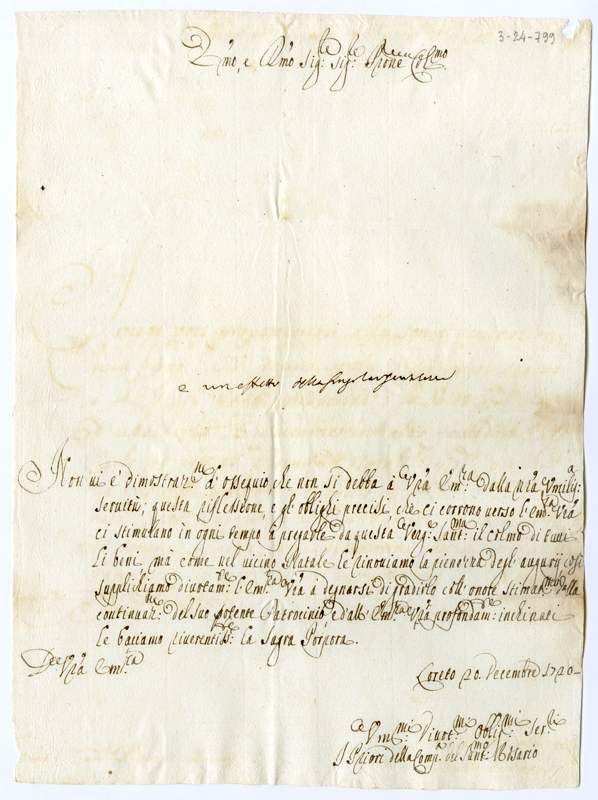 3-24-799
Emo, e Rmo Sig:re Sig:re Prone Colmo
e un effetto della singolar gentilezza
Non vi è dimostraz:ne d'ossequio, che non si debba à Vra Em:za dalla nra Vmiliss:a
seruitù; questa riflessione, e gl'oblighi precisi, che ci corrono verso l'Em:za Vra
ci stimolano in ogni tempo à pregarle da questa Verg:e Sant:ma il colmo di tutti
li beni, mà come nel vicino Natale le rinouiamo la pienezza degl'augurij, così
supplichiamo diuotam:te l'Em:za Vra à degnarsi di gradirlo coll'onore stimat:mo della
continuaz:ne del suo potente Patrocinio, e dall'Em:za Vra profondam:te inchinati
le baciamo riuerentem:te la Sagra Porpora.
Dell'Em:za Vra
Loreto 20. Decembre 1720
Vm:mi Diuot:mi Oblig:mi Ser:ri
I Priori della Comp:a del Sant:mo Rosario